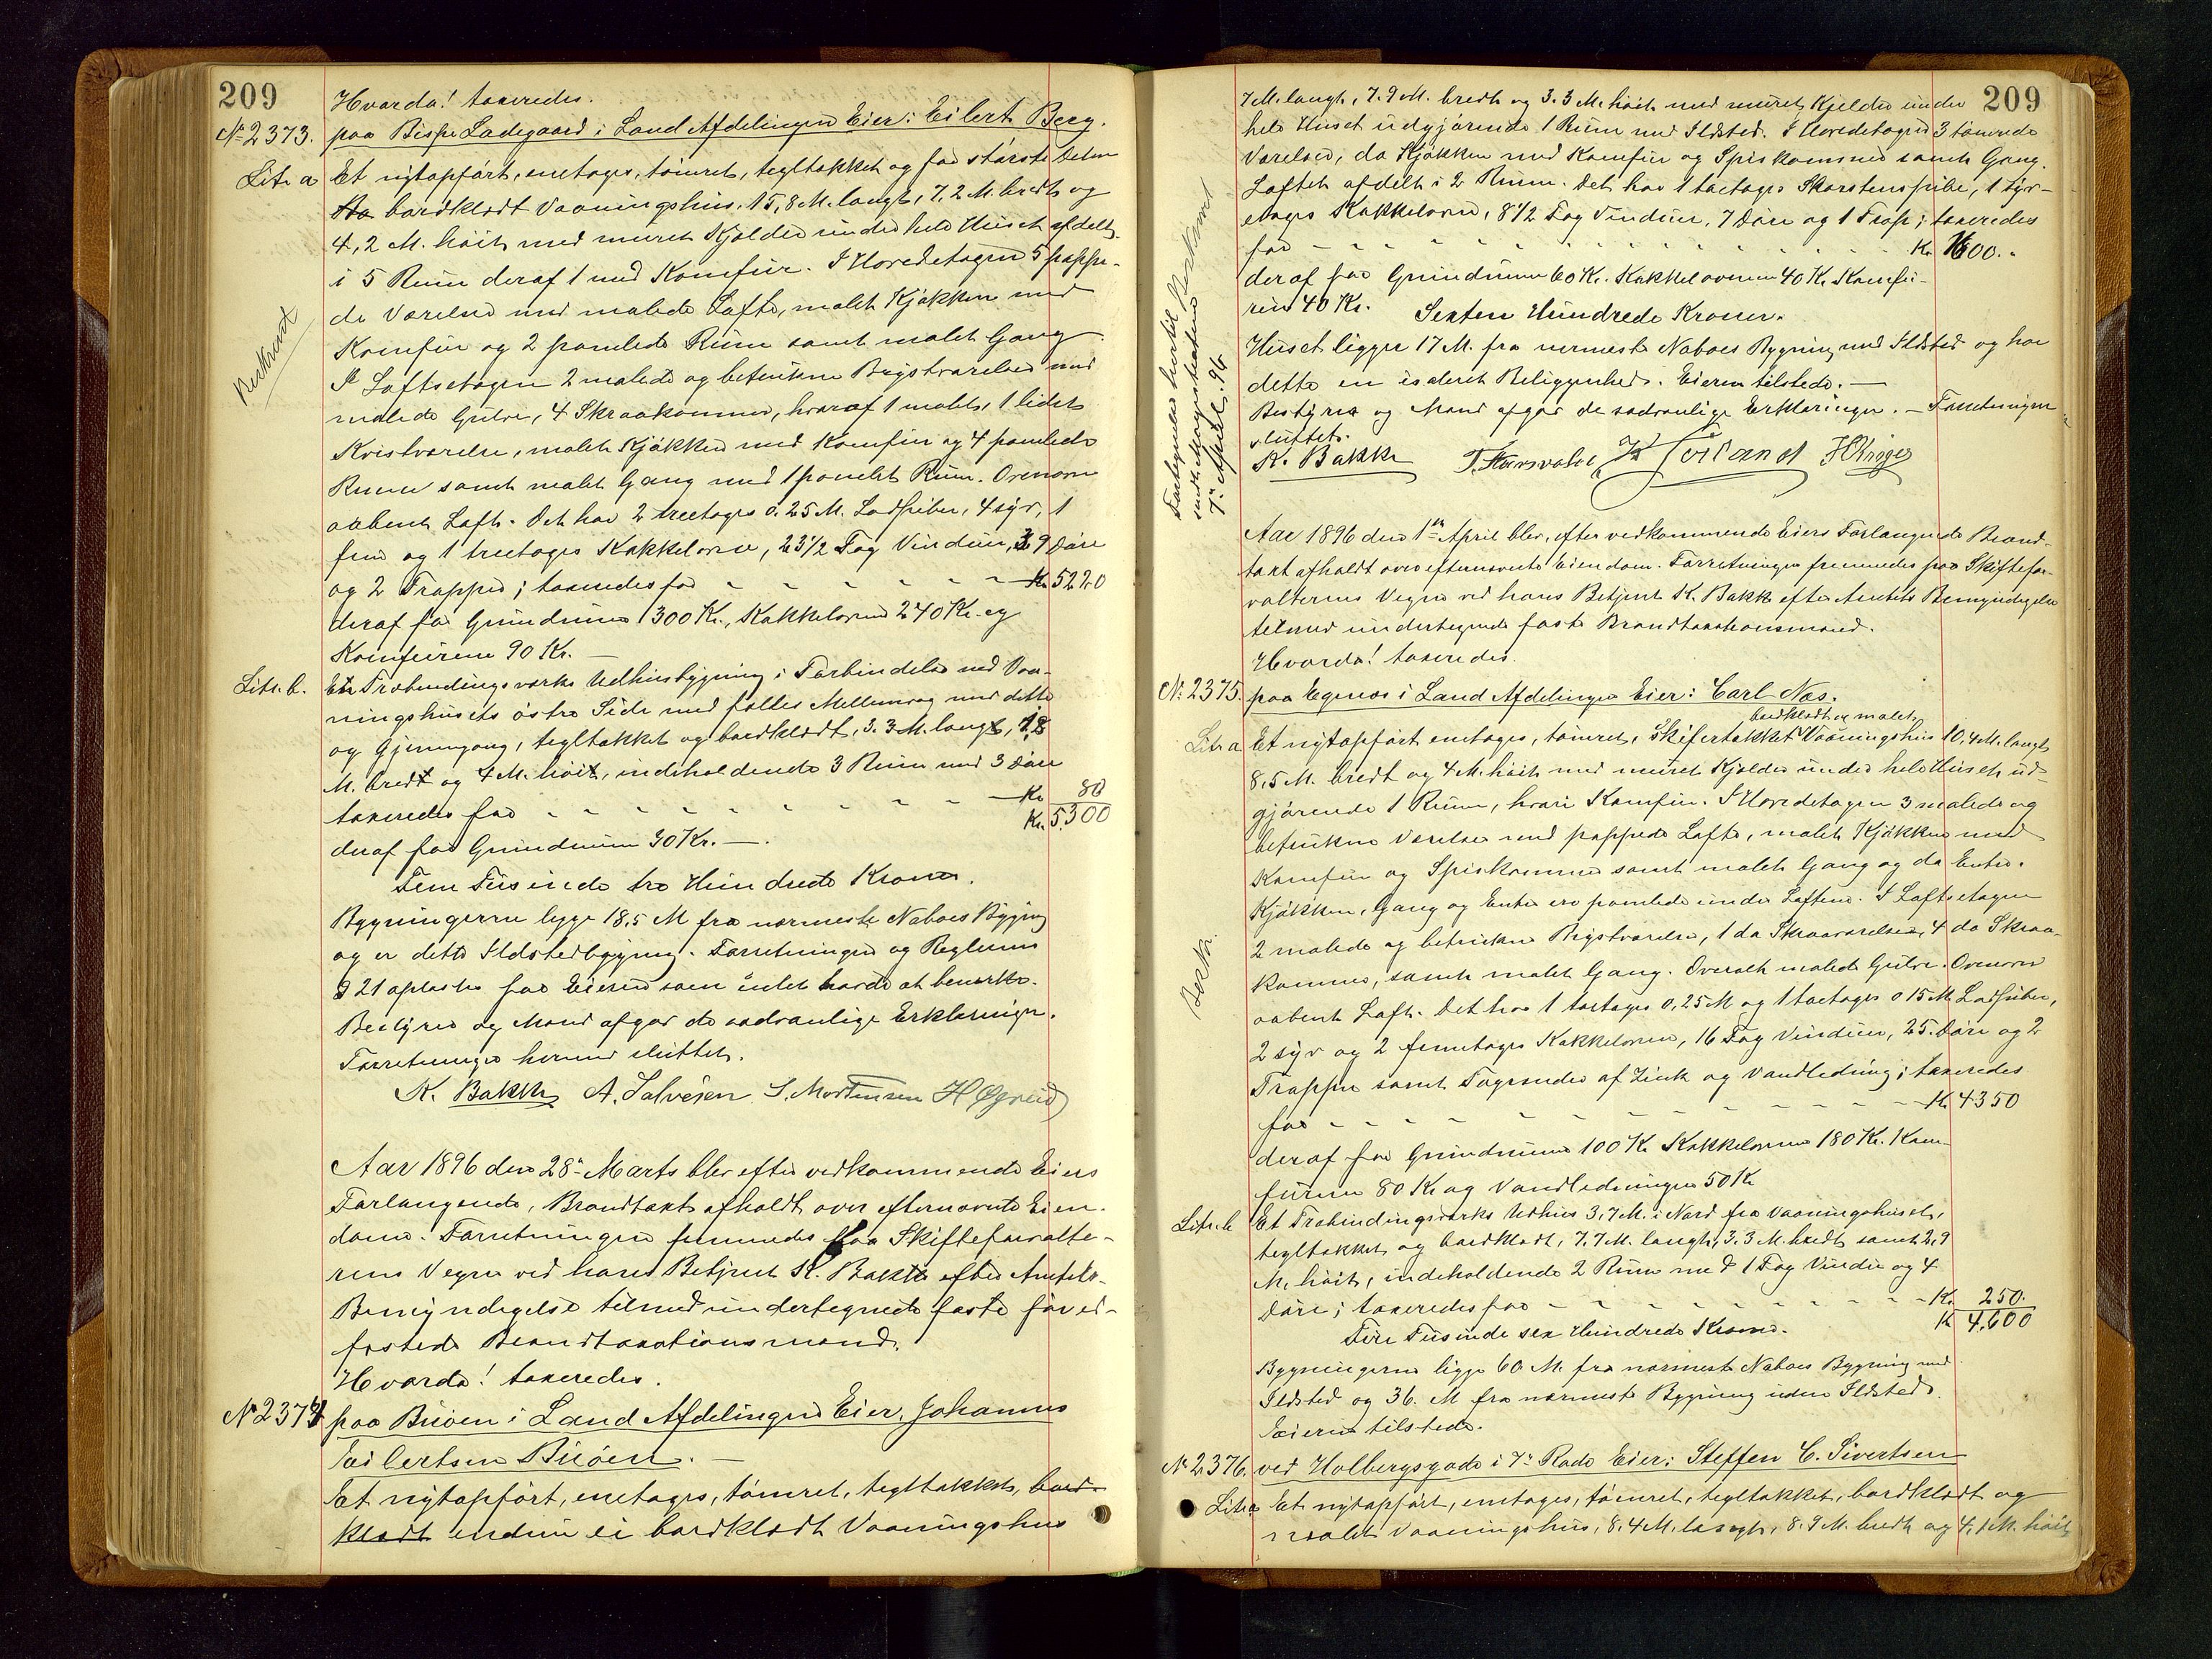 209
Hvorda! taxeredes.
No 2373. paa Bispe Ladegaard i Land Afdelingen Eier: Eilert Berg.
Litr a Et nytopført, enetages, tømret, tegltækket og for største Delen
bordklædt Vaaningshus. 15,8 M. langt, 7,2 M. bredt og
4,2 M. høit med muret Kjælder under hele Huset afdelt
i 5 Rum deraf 1 med Komfur. I Hovedetagen 5 pappe-
de Værelser med malede Lofte, malet Kjøkken med
Komfur og 2 panelede Rum samt malet Gang.
I Loftsetagen 2 malede og betrukne Brystværelser med
malede Gulve, 4 Skraakammer, hvoraf 1 malet, 1 lidet
Kvistværelse, malet Kjøkken med Komfur og 4 panelede
Rum samt malet Gang med 1 panelet Rum. Ovenover
aabent Loft. Det har 2 treetages 0.25 M. Lodpiber, 4 syv, 1
fem og 1 treetages Kakkelovne, 23 1/2 Fag Vinduer, 39 Døre
og 2 Trapper; taxeredes for - - - - - - Kr 5220
deraf for Grundmur 1300 Kr., Kakkelovne 240 Kr. og
Komfurene 90 Kr. —
Litr. b. Et Træbindingsværks Udhusbygning i Forbindelse med Vaa-
ningshusets østre Side med fælles Mellemvæg med dette
og Gjennemgang, tegltækket og bordklædt, 3.3 M. langt, 1,8
M. bredt og 4 M. høit, indeholdende 3 Rum med 3 Døre
taxeredes for - - - - - - - - Kr 80
Kr. 5.300
deraf for Grundmur 30 Kr. —.
Fem Tusinde tre Hundrede Kroner.
Bygningerne ligge 18,5 M fra nærmeste Naboes Bygning
og er dette Ildstedbygning. Forretningen og Reglernes
§ 21 oplæstes for Eieren som intet havde at bemærke.
Bestyrer og Mænd afgav de sædvanlige Erklæringer.
Forretningen hermed sluttet.
K. Bakke A. Salvesen S. Mortensen H Øgreid
Aar 1896 den 28de Marts blev efter vedkommende Eiers
Forlangende, Brandtaxt afholdt over efternævnte Eien-
dom. Forretningen fremmedes paa Skifteforvalte-
rens Vegne ved hans Betjent K. Bakke efter Amtets
Bemyndigelse tilmed undertegnede faste for ed-
fæstede Brandtaxationsmænd.
Hvorda! taxeredes.
No 2374 paa Buøen i Land Afdelingen Eier, Johannes
Eilertsen Buøen. —
Et nytopført, enetages, tømret, tegltækket, bord-
klædt endnu ei bordklædt Vaaningshus
Bestemt
209
7 M. langt, 7.9 M. bredt og 3.3 M. høit med muret Kjelder under
hele Huset udgjørende 1 Rum med Ildsted. I Hovedetagen 3 tømrede
Værelser, do Kjøkken med Komfur og Spiskammer samt Gang.
Loftet afdelt i 2 Rum. Det har 1 toetages Skorstenspibe, 1 syv-
etages Kakkelovn, 8 1/2 Fag Vinduer, 7 Døre og 1 Trap; taxeredes
for - - - - - - - - - - - Kr 1600.
deraf for Grundmuren 60 Kr. Kakkelovnen 40 Kr. Komfu-
ren 40 Kr. Sexten Hundrede Kroner.
Huset ligger 17 M. fra nærmeste Naboes Bygning med Ildsted og har
dette en isoleret Beliggenhed. Eieren tilstede. —
Bestyrer og Mænd afgav de sædvanlige Erklæringer. — Forretningen
sluttet.
K. Bakke
Aar 1896 den 1ste April blev, efter vedkommende Eiers Forlangende Brand-
taxt afholdt over efternævnte Eiendom. Forretningen fremmedes paa Skiftefor-
valterens Vegne ved hans Betjent K. Bakke efter Amtets Bemyndigelse
tilmed undertegnede faste Brandtaxationsmænd.
Hvorda! taxeredes.
No 2375. paa Egenæs i Land Afdelingen Eier: Carl Næs.
bordklædt og malet
Litr a Et nytopført enetages, tømret, skifertækket Vaaningshus 10,4 M. langt
8,5 M. bredt og 4 M. høit med muret Kjælder under hele Huset ud-
gjørende 1 Rum, hvori Komfur. I Hovedetagen 3 malede og
betrukne Værelser med pappede Lofte, malet Kjøkken med
Komfur og Spiskammer samt malet Gang og do Entre.
Kjøkken, Gang og Entre ere panelede under Loftene. I Loftsetagen
2 malede og betrukne Brystværelser, 1 do Skraaværelse, 4 do Skraa-
kammer, samt malet Gang. Overalt malede Gulve. Ovenover
aabent Loft. Det har 1 toetages 0,25 M og 1 toetages 0 15 M Lodpiber,
2 syv og 2 femetages Kakkelovne, 16 Fag Vinduer, 25. Døre og 2
Trapper samt Tagrender af Zink og Vandledning; taxeredes
for - - - - - - - - - - Kr 4350
deraf for Grundmuren 100 Kr Kakkelovnene 180 Kr. Kom-
furene 80 Kr og Vandledningen 50 Kr
Litr. b Et Træbindingsværks Udhus 3,7 M. i Nord fra Vaaningshuset,
tegltækket og bordklædt, 7.7 M. langt, 3.3 M. bredt samt 2,9
M. høit, indeholdende 2 Rum med 1 Fag Vindu og 4
Døre; taxeredes for - - - - - - - - Kr. 250.
Fire Tusinde sex Hundrede Kroner. Kr 4.600
Bygningerne ligge 60 M. fra nærmeste Naboes Bygning med
Ildsted og 36. M fra nærmeste Bygning uden Ildsted.
Eieren tilstede.
No 2376. ved Holbergsgade i 7de Rode Eier: Steffen C. Sivertsen
Litr a Et nytopført, enetages, tømret, tegltækket, bordklædt og
malet Vaaningshus, 8.4 M. langt, 8.9 M. bredt og 4,1 M. høit